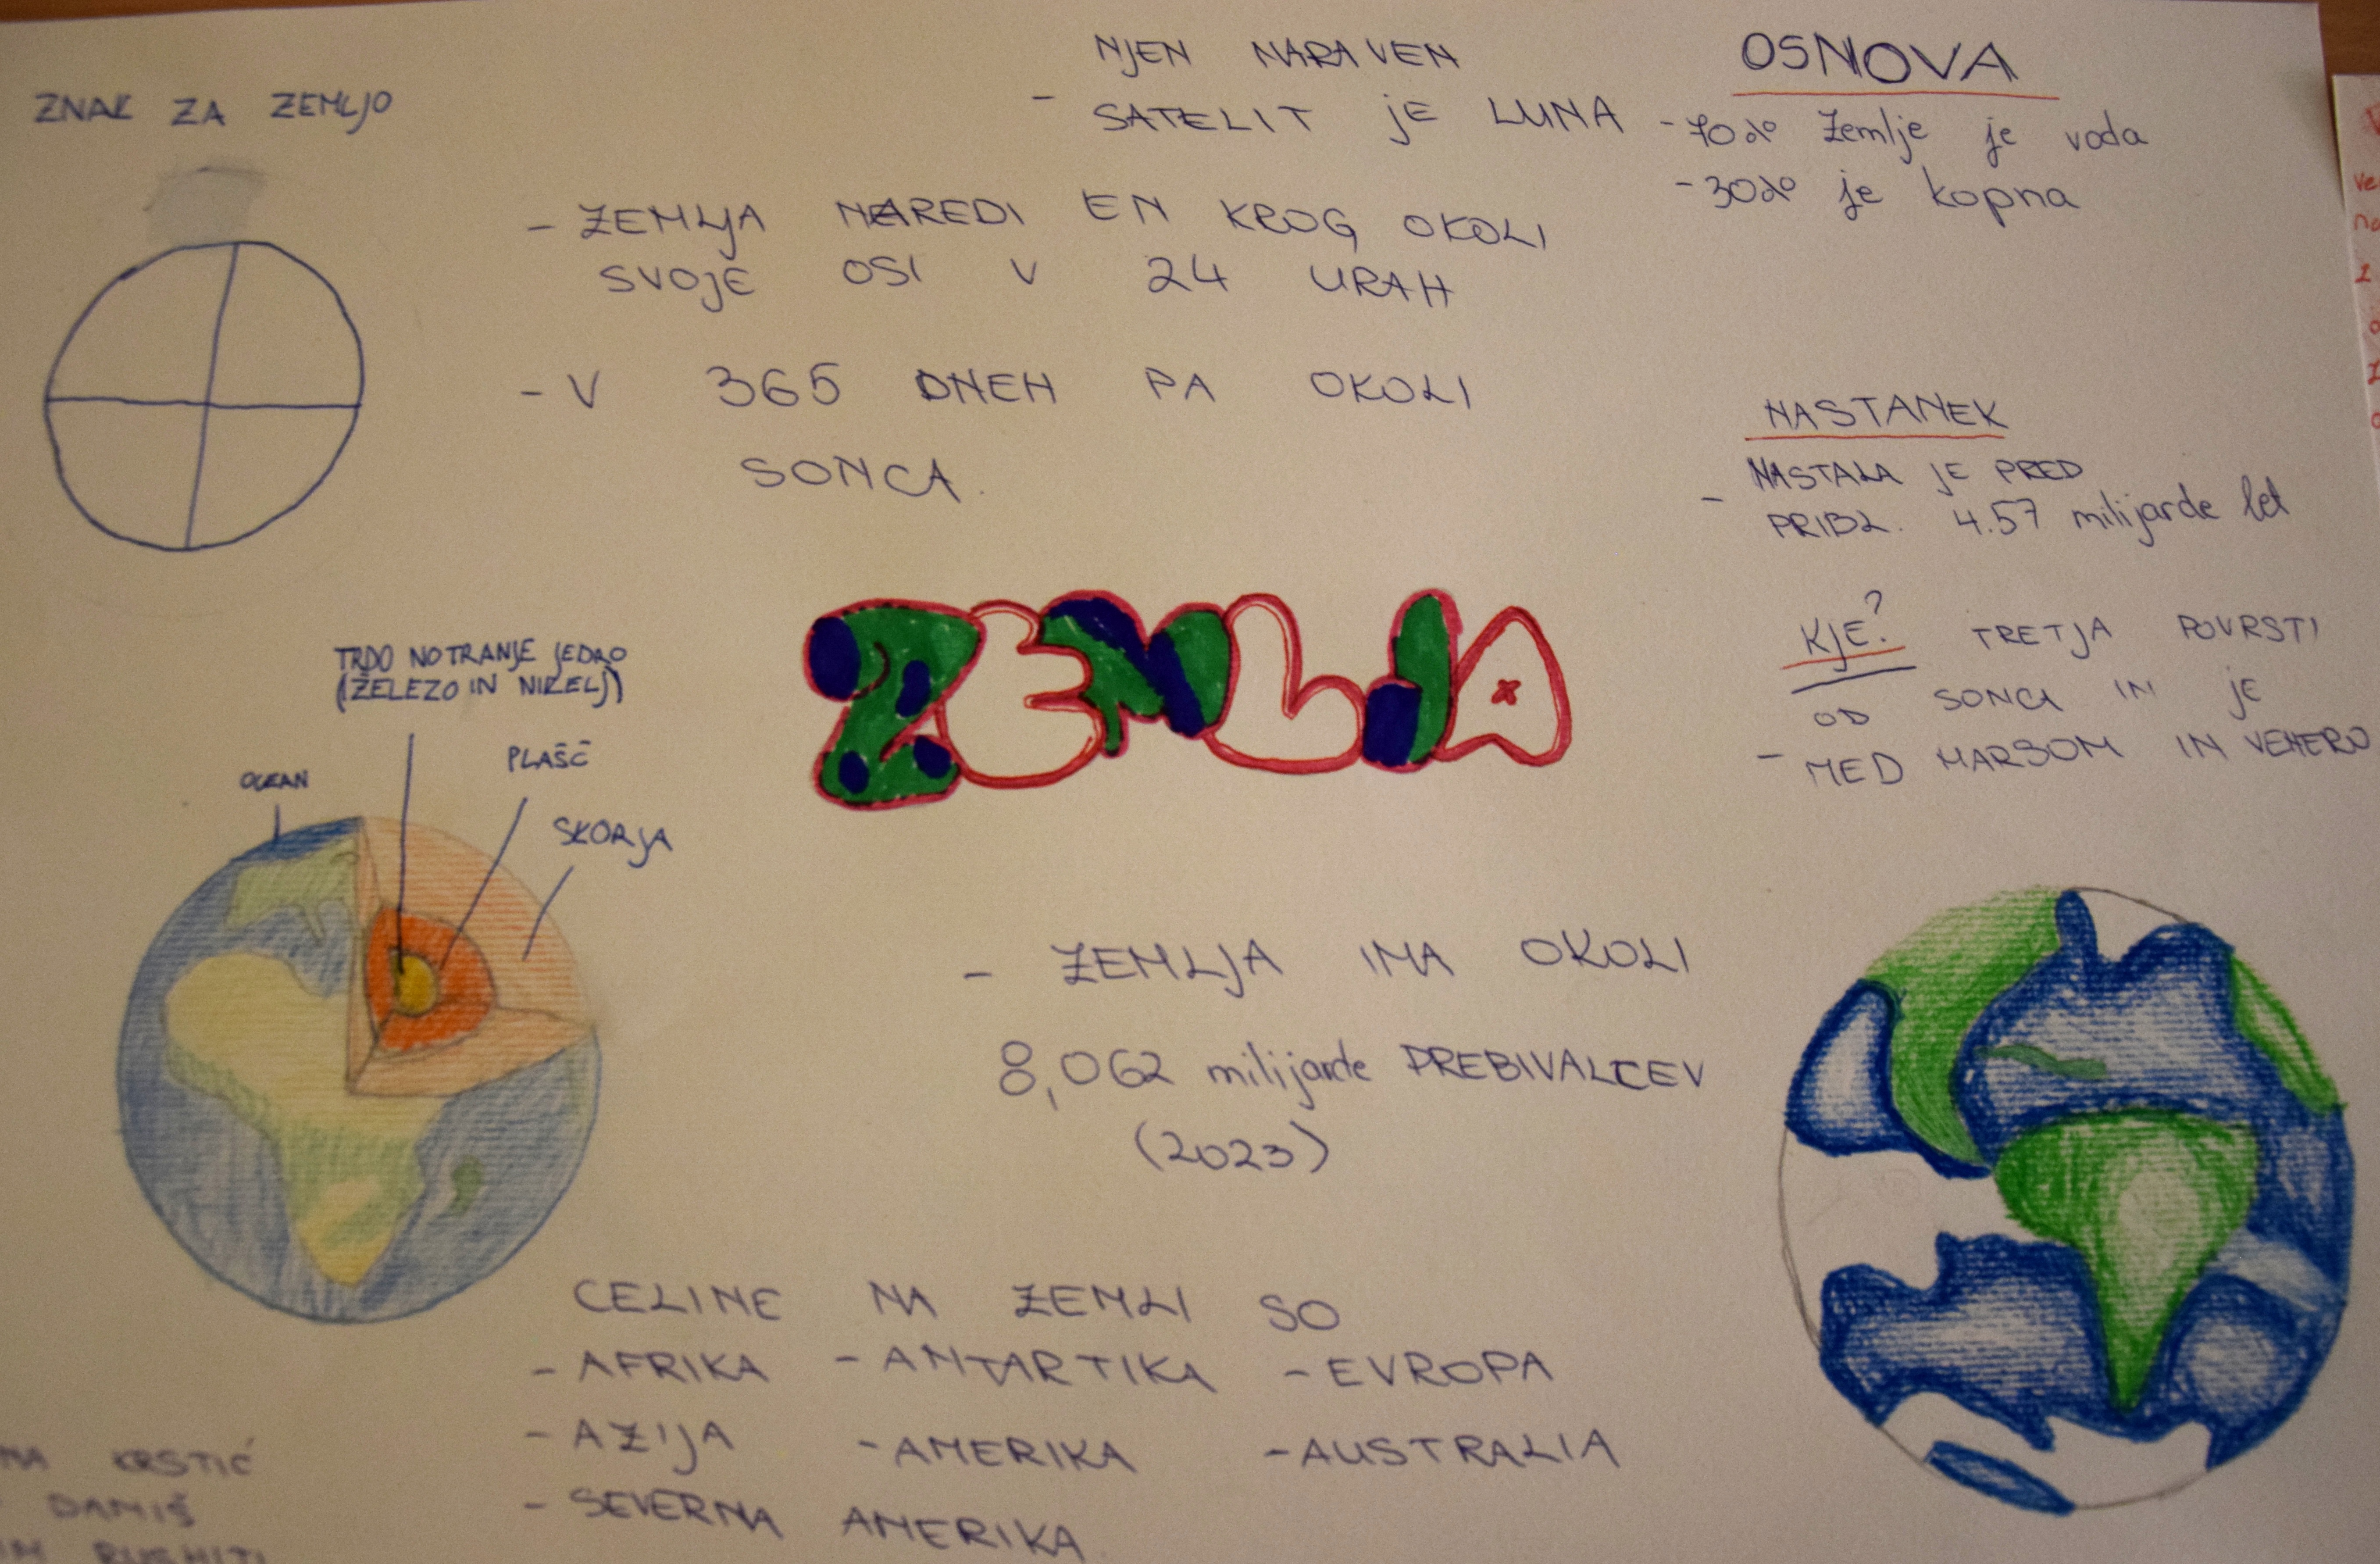 ZNAK ZA ZEMLJO
NJEN NARAVEN
- SATELIT JE LUNA
- ZEMLJA NAREDI EN KROG OKOLI
SVOJE OSI V 24 URAH
- V 365 DNEH PA OKOLI
SONCA.
OSNOVA
- 70% Zemlje je voda
- 30% je kopna
NASTANEK
NASTALA JE PRED
- PRIBL. 4.57 milijarde let
KJE? TRETJA POVRSTI
OD SONCA IN JE
- MED MARSOM IN VENERO
ZEMLJA
TRDO NOTRANJE JEDRO
(ŽELEZO IN NIKELJ)
PLAŠČ
OCEAN
SKORJA
- ZEMLJA IMA OKOLI
8,062 milijarde PREBIVALCEV
(2023)
CELINE NA ZEMLI SO
- AFRIKA - ANTARTIKA - EVROPA
- AZIJA - AMERIKA - AUSTRALIA
- SEVERNA AMERIKA
KRSTIĆ
DANIŠ